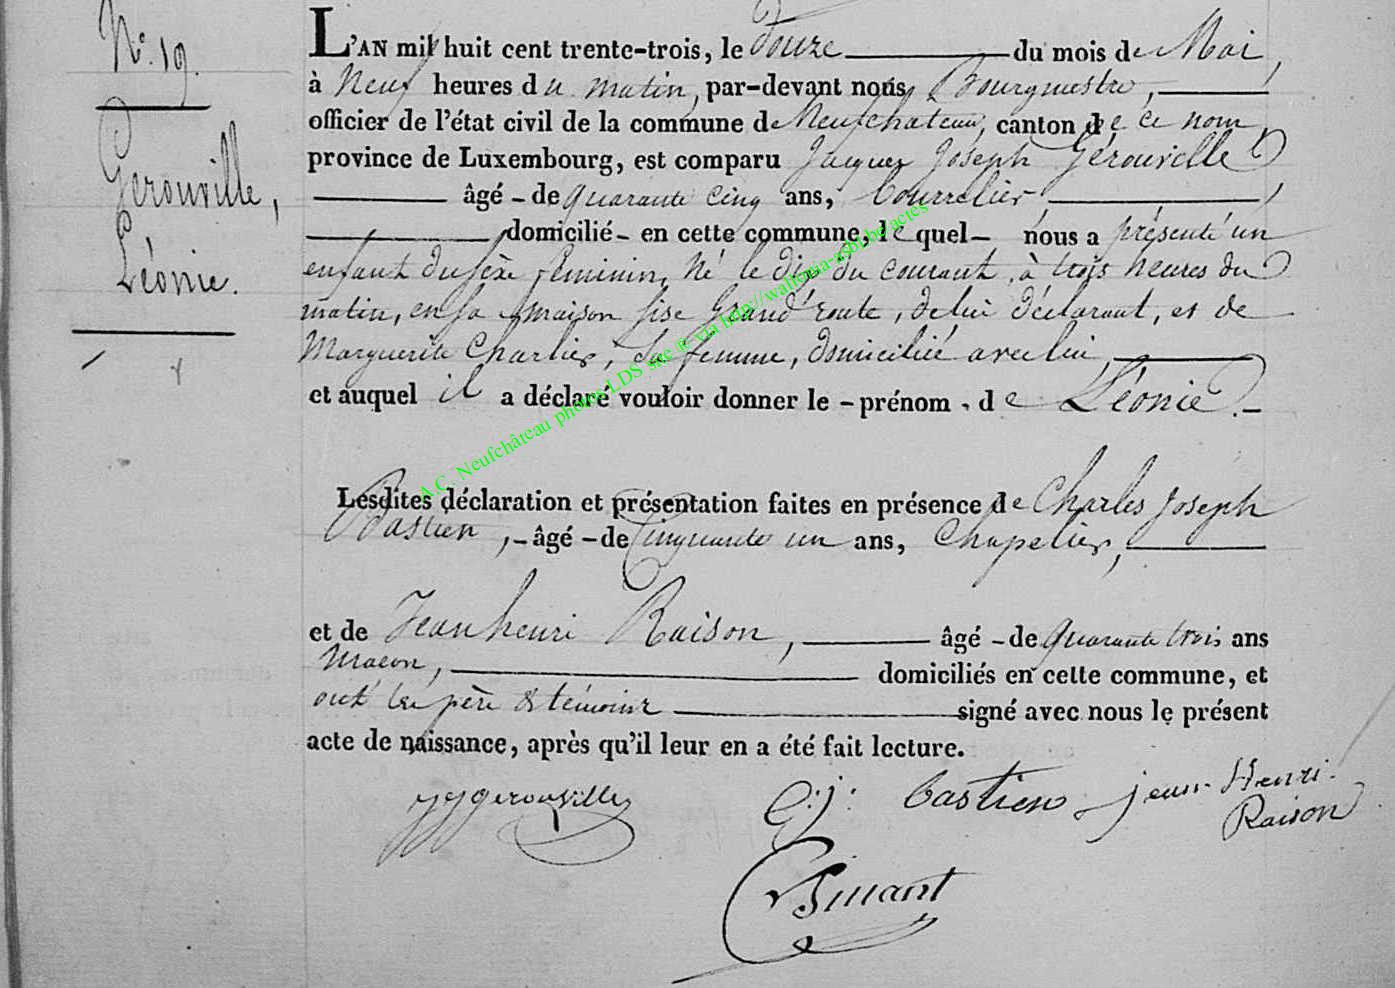 N.° 19.
Gerouville,
Léonie.
L'AN mil huit cent trente-trois, le Douze du mois de Mai,
à Neuf heures du matin, par-devant nous Bourgmestre,
officier de l'état civil de la commune de Neufchateau, canton de ce nom,
province de Luxembourg, est comparu Jacques Joseph Gérouville
âgé - de quarante cinq ans, bourrelier,
domicilié - en cette commune, lequel - nous a présenté un
enfant du sèxe féminin, Né le dix du courant, à trois heures du
matin, en sa maison sise Grand'route, de lui déclarant, et de
Marguerite Charlier, sa femme, domiciliée avec lui,
et auquel il a déclaré vouloir donner le - prénom - de Léonie. -
Lesdites déclaration et présentation faites en présence de Charles Joseph
Bastien, - âgé - de Cinquante un ans, Chapelier,
et de Jean henri Raison, âgé - de quarante trois ans
Macon, domiciliés en cette commune, et
ont les père & témoins signé avec nous le présent
acte de naissance, après qu'il leur en a été fait lecture.
JJ Gerouville C: j: bastien jean-Henri
Raison
A.C. Neufchâteau photos LDS site & via http://wallonia-asbl.be/actes